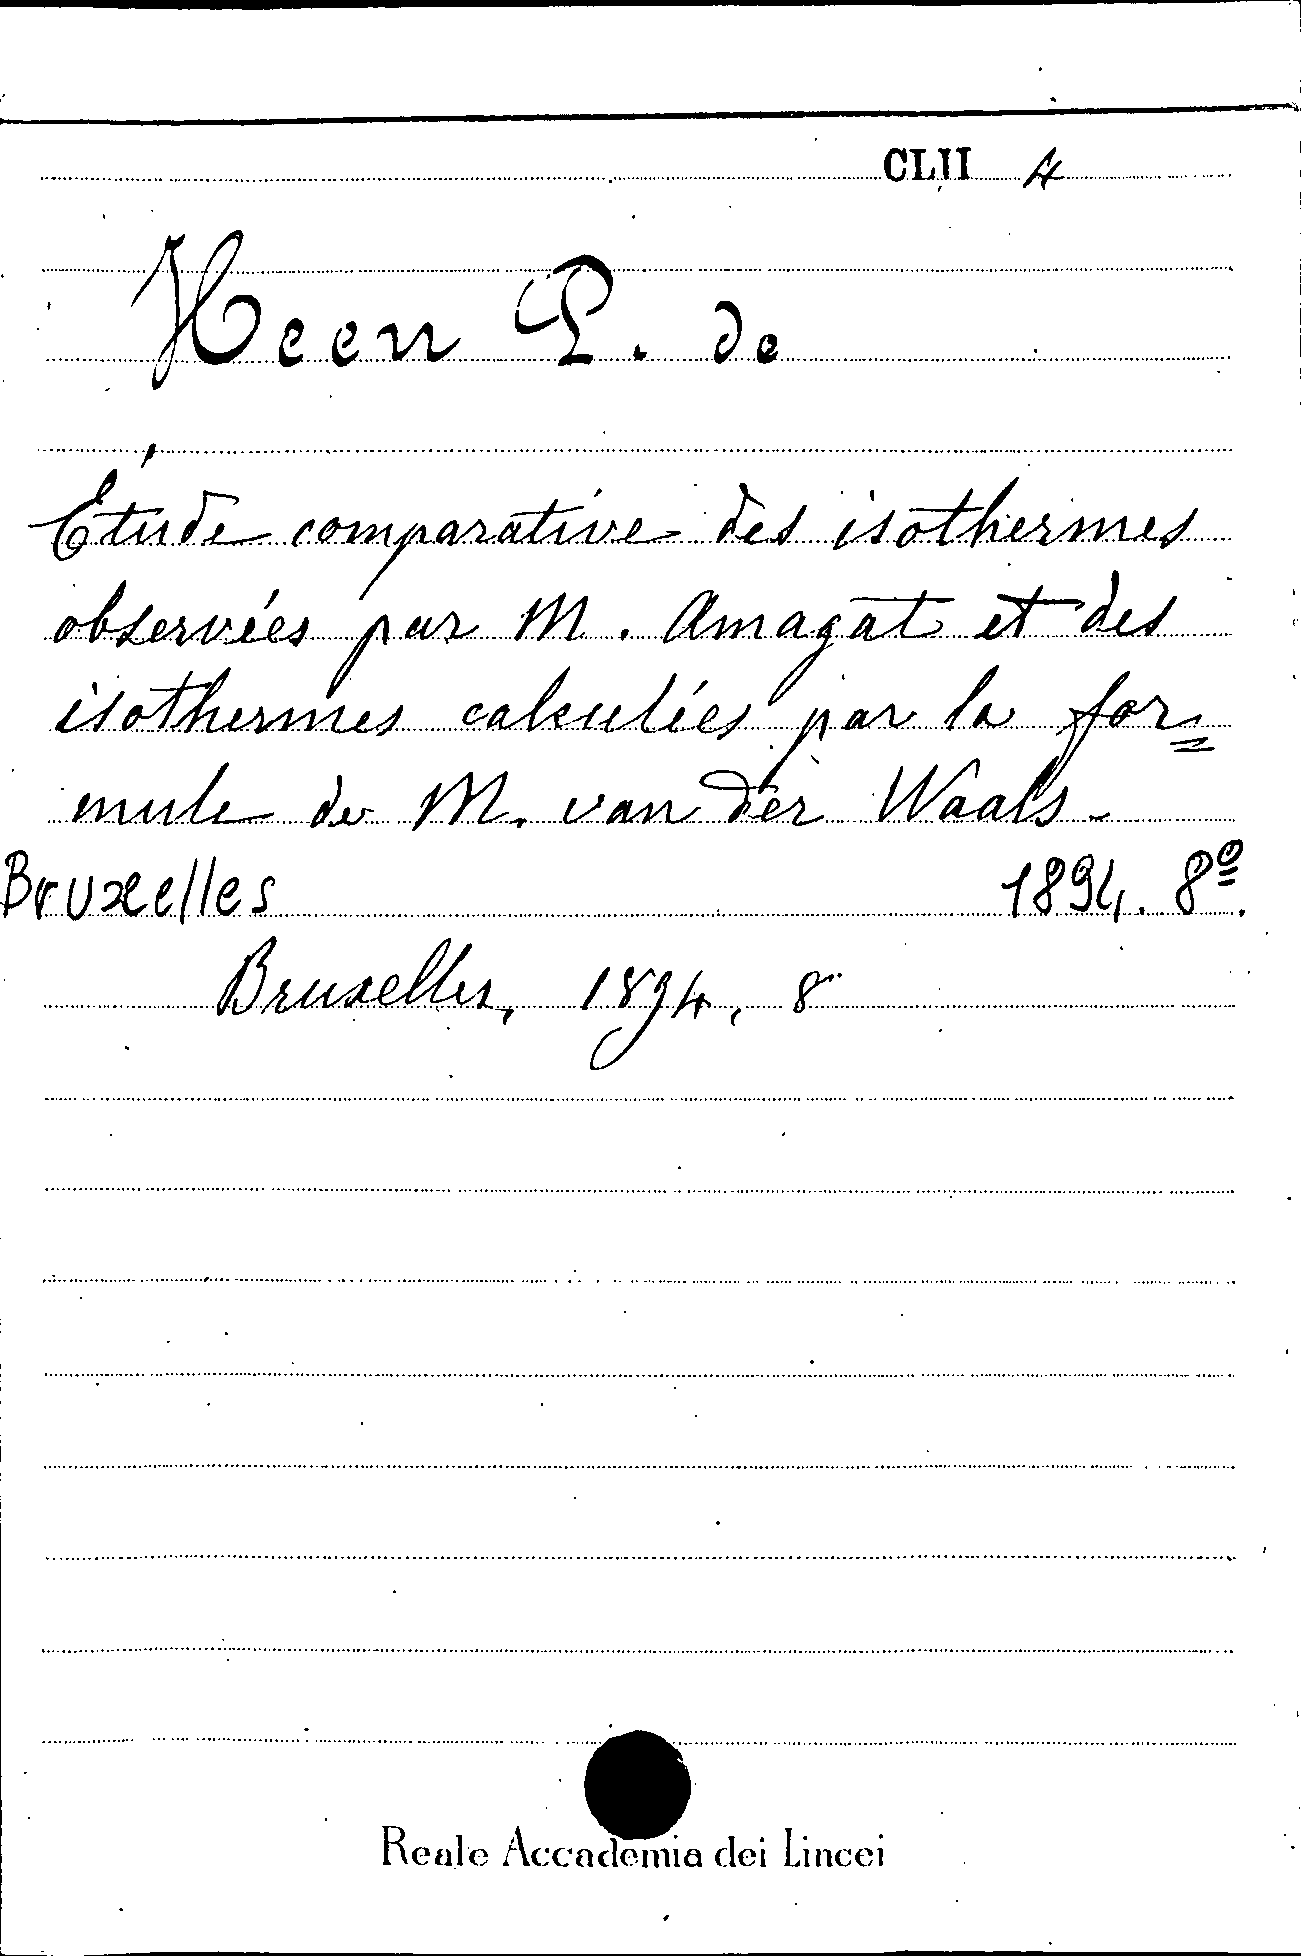 CLII 4
Heen P. de
Étude comparative des isothermes
observées par M. Amagat et des
isothermes calculées par la for=
mule de M. van der Waals.
Bruxelles 1894. 8º.
Bruxelles, 1894, 8º
Reale Accademia dei Lincei